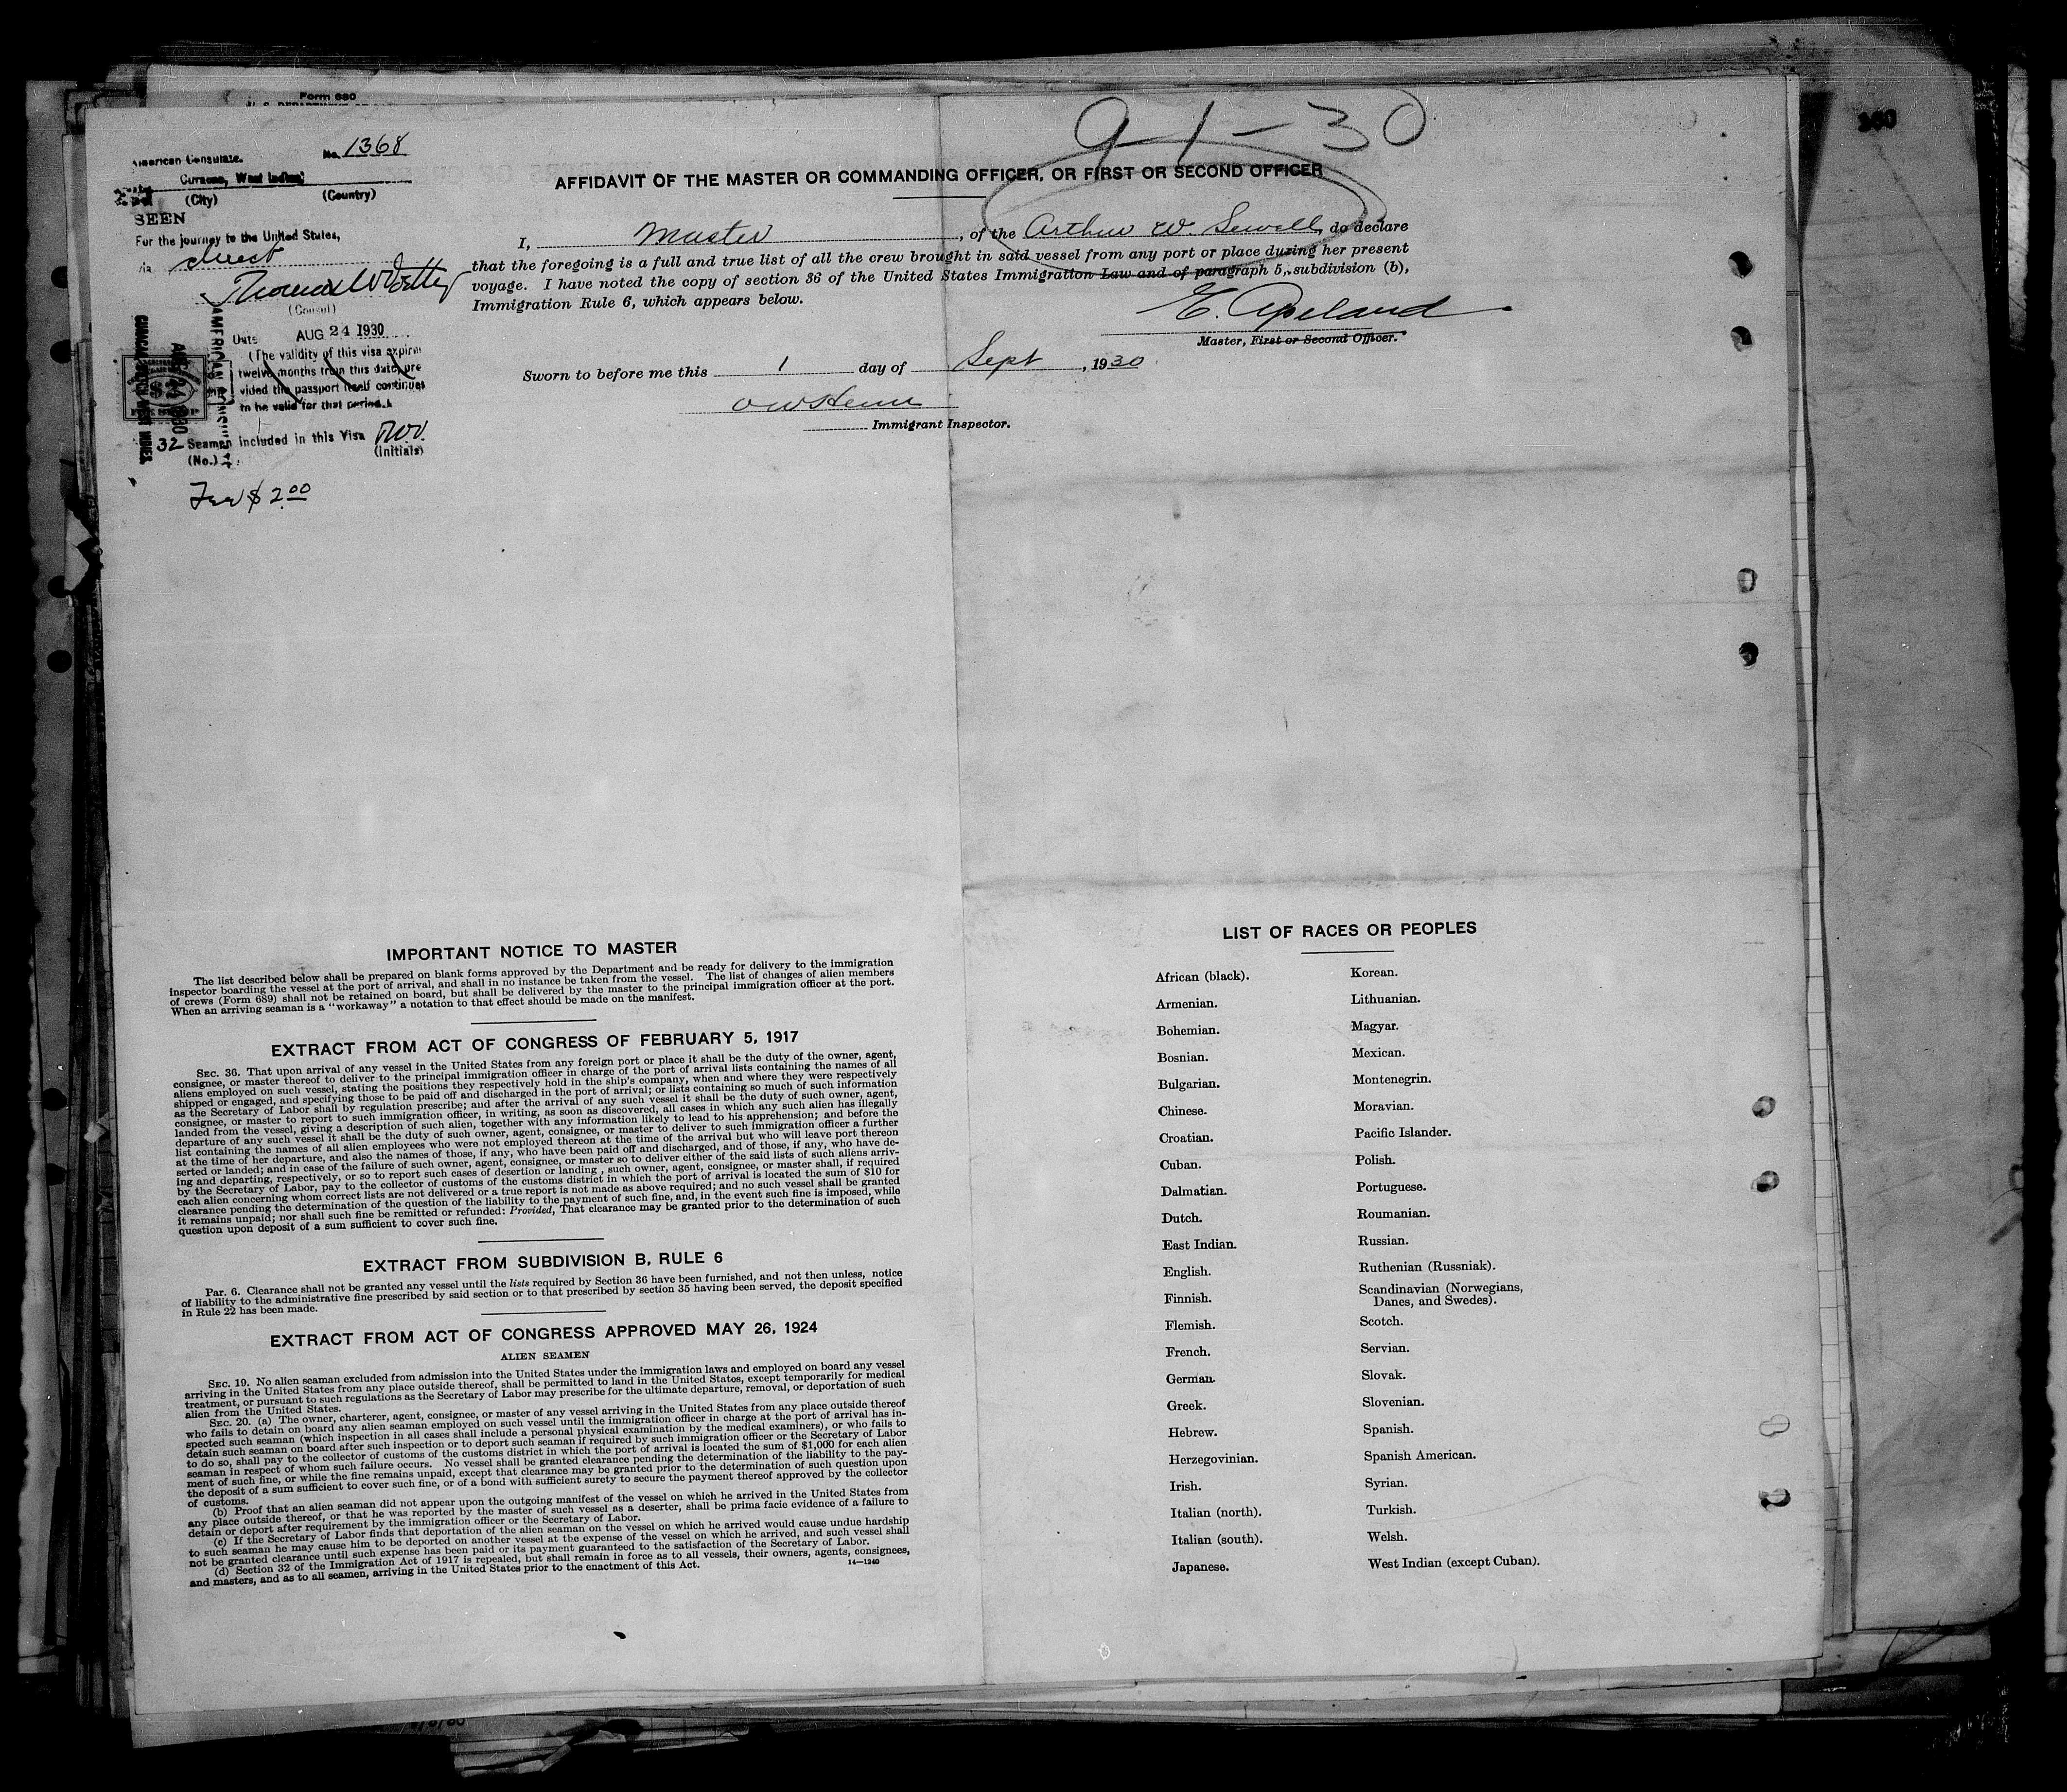 Form 680
9-1-30
American Consulate. No. 1368
Curacao, West Indies
(City) (Country)
SEEN
For the journey to the United States,
direct
(Consul)
Date AUG 24 1930
(The validity of this visa expires
twelve months from this date, pro
vided the passport itself continues
to be valid for that period.)
32 Seamen included in this Visa
(No.) (Initials)
Fee $ 2.00
AMERICAN CONSULATE
AUG 24 1930
CURACAO, DUTCH WEST INDIES.
AFFIDAVIT OF THE MASTER OR COMMANDING OFFICER, OR FIRST OR SECOND OFFICER
I, Master, of the Arthur W. Sewall, do declare
that the foregoing is a full and true list of all the crew brought in said vessel from any port or place during her present
voyage. I have noted the copy of section 36 of the United States Immigration Law and of paragraph 5, subdivision (b),
Immigration Rule 6, which appears below.
E. Apeland
Master, First or Second Officer.
Sworn to before me this 1 day of Sept, 1930
Immigrant Inspector.
IMPORTANT NOTICE TO MASTER
The list described below shall be prepared on blank forms approved by the Department and be ready for delivery to the immigration
inspector boarding the vessel at the port of arrival, and shall in no instance be taken from the vessel. The list of changes of alien members
of crews (Form 689) shall not be retained on board, but shall be delivered by the master to the principal immigration officer at the port.
When an arriving seaman is a "workaway" a notation to that effect should be made on the manifest.
EXTRACT FROM ACT OF CONGRESS OF FEBRUARY 5, 1917
SEC. 36. That upon arrival of any vessel in the United States from any foreign port or place it shall be the duty of the owner, agent,
consignee, or master thereof to deliver to the principal immigration officer in charge of the port of arrival lists containing the names of all
aliens employed on such vessel, stating the positions they respectively hold in the ship's company, when and where they were respectively
shipped or engaged, and specifying those to be paid off and discharged in the port of arrival; or lists containing so much of such information
as the Secretary of Labor shall by regulation prescribe; and after the arrival of any such vessel it shall be the duty of such owner, agent,
consignee, or master to report to such immigration officer, in writing, as soon as discovered, all cases in which any such alien has illegally
landed from the vessel, giving a description of such alien, together with any information likely to lead to his apprehension; and before the
departure of any such vessel it shall be the duty of such owner, agent, consignee, or master to deliver to such immigration officer a further
list containing the names of all alien employees who were not employed thereon at the time of the arrival but who will leave port thereon
at the time of her departure, and also the names of those, if any, who have been paid off and discharged, and of those, if any, who have de-
serted or landed; and in case of the failure of such owner, agent, consignee, or master so to deliver either of the said lists of such aliens arriv-
ing and departing, respectively, or so to report such cases of desertion or landing, such owner, agent, consignee, or master shall, if required
by the Secretary of Labor, pay to the collector of customs of the customs district in which the port of arrival is located the sum of $10 for
each alien concerning whom correct lists are not delivered or a true report is not made as above required; and no such vessel shall be granted
clearance pending the determination of the question of the liability to the payment of such fine, and, in the event such fine is imposed, while
it remains unpaid; nor shall such fine be remitted or refunded: Provided, That clearance may be granted prior to the determination of such
question upon deposit of a sum sufficient to cover such fine.
EXTRACT FROM SUBDIVISION B, RULE 6
Par. 6. Clearance shall not be granted any vessel until the lists required by Section 36 have been furnished, and not then unless, notice
of liability to the administrative fine prescribed by said section or to that prescribed by section 35 having been served, the deposit specified
in Rule 22 has been made.
EXTRACT FROM ACT OF CONGRESS APPROVED MAY 26, 1924
ALIEN SEAMEN
SEC. 19. No alien seaman excluded from admission into the United States under the immigration laws and employed on board any vessel
arriving in the United States from any place outside thereof, shall be permitted to land in the United States, except temporarily for medical
treatment, or pursuant to such regulations as the Secretary of Labor may prescribe for the ultimate departure, removal, or deportation of such
alien from the United States.
SEC. 20. (a) The owner, charterer, agent, consignee, or master of any vessel arriving in the United States from any place outside thereof
who fails to detain on board any alien seaman employed on such vessel until the immigration officer in charge at the port of arrival has in-
spected such seaman (which inspection in all cases shall include a personal physical examination by the medical examiners), or who fails to
detain such seaman on board after such inspection or to deport such seaman if required by such immigration officer or the Secretary of Labor
to do so, shall pay to the collector of customs of the customs district in which the port of arrival is located the sum of $1,000 for each alien
seaman in respect of whom such failure occurs. No vessel shall be granted clearance pending the determination of the liability to the pay-
ment of such fine, or while the fine remains unpaid, except that clearance may be granted prior to the determination of such question upon
the deposit of a sum sufficient to cover such fine, or of a bond with sufficient surety to secure the payment thereof approved by the collector
of customs.
(b) Proof that an alien seaman did not appear upon the outgoing manifest of the vessel on which he arrived in the United States from
any place outside thereof, or that he was reported by the master of such vessel as a deserter, shall be prima facie evidence of a failure to
detain or deport after requirement by the immigration officer or the Secretary of Labor.
(c) If the Secretary of Labor finds that deportation of the alien seaman on the vessel on which he arrived would cause undue hardship
to such seaman he may cause him to be deported on another vessel at the expense of the vessel on which he arrived, and such vessel shall
not be granted clearance until such expense has been paid or its payment guaranteed to the satisfaction of the Secretary of Labor.
(d) Section 32 of the Immigration Act of 1917 is repealed, but shall remain in force as to all vessels, their owners, agents, consignees,
and masters, and as to all seamen, arriving in the United States prior to the enactment of this Act.
14—1240
LIST OF RACES OR PEOPLES
African (black).
Armenian.
Bohemian.
Bosnian.
Bulgarian.
Chinese.
Croatian.
Cuban.
Dalmatian.
Dutch.
East Indian.
English.
Finnish.
Flemish.
French.
German.
Greek.
Hebrew.
Herzegovinian.
Irish.
Italian (north).
Italian (south).
Japanese.
Korean.
Lithuanian.
Magyar.
Mexican.
Montenegrin.
Moravian.
Pacific Islander.
Polish.
Portuguese.
Roumanian.
Russian.
Ruthenian (Russniak).
Scandinavian (Norwegians,
Danes, and Swedes).
Scotch.
Servian.
Slovak.
Slovenian.
Spanish.
Spanish American.
Syrian.
Turkish.
Welsh.
West Indian (except Cuban).